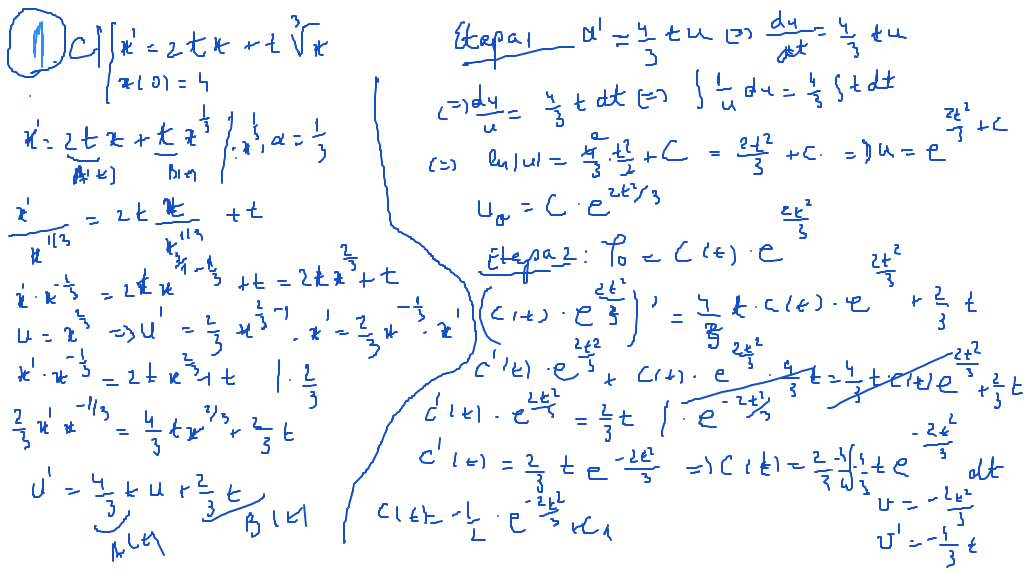 1 C) { x' = 2tx + t ∛x
x(0) = 4
x' = 2t x + t x^{1/3} | : x^{1/3}, α = 1/3
A(t) B(t)
x'/x^{1/3} = 2t x/x^{1/3} + t
x' · x^{-1/3} = 2t x^{3/3 - 1/3} + t = 2t x^{2/3} + t
u = x^{2/3} => u' = 2/3 x^{2/3 - 1} · x' = 2/3 x^{-1/3} · x'
x' · x^{-1/3} = 2t x^{2/3} + t | · 2/3
2/3 x' x^{-1/3} = 4/3 t x^{2/3} + 2/3 t
u' = 4/3 t u + 2/3 t
A(t) B(t)
Etapa 1 u' = 4/3 t u (=) du/dt = 4/3 t u
(=) du/u = 4/3 t dt (=) ∫ 1/u du = 4/3 ∫ t dt
(=) ln|u| = 4/3 · t²/2 + C = 2t²/3 + C. => u = e^{2t²/3 + C}
u₀ = C · e^{2t²/3}
Etapa 2: φ₀ = C(t) · e^{2t²/3}
(C(t) · e^{2t²/3})' = 4/3 t · C(t) · e^{2t²/3} + 2/3 t
C'(t) · e^{2t²/3} + C(t) · e^{2t²/3} · 4/3 t = 4/3 t · C(t) e^{2t²/3} + 2/3 t
C'(t) · e^{2t²/3} = 2/3 t | · e^{-2t²/3}
C'(t) = 2/3 t e^{-2t²/3} => C(t) = 2/3 · -3/4 ∫ -4/3 t e^{-2t²/3} dt
v = -2t²/3
C(t) = -1/2 · e^{-2t²/3} + C₁
v' = -4/3 t